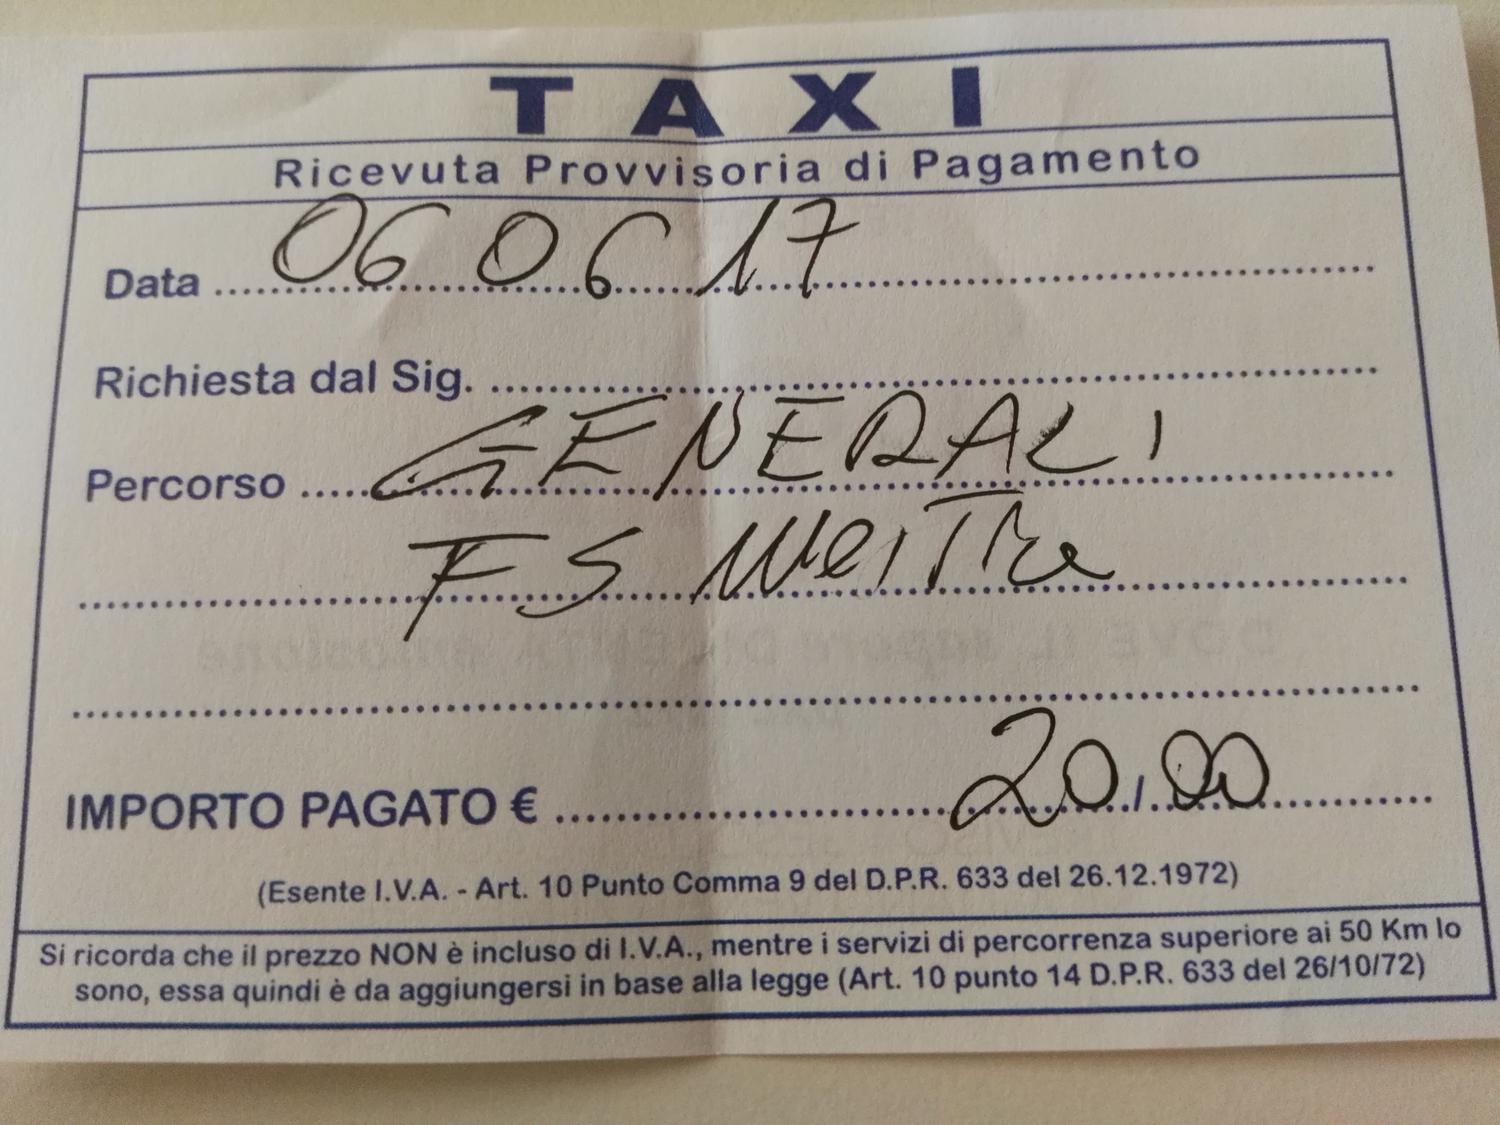 TAXI
Ricevuta Provvisoria di Pagamento
Data ........ 06 06 17 ........
Richiesta dal Sig. ................
Percorso ..... GENERALI .....
FS Mestre
IMPORTO PAGATO € ................ 20,00 ........
(Esente I.V.A. - Art. 10 Punto Comma 9 del D.P.R. 633 del 26.12.1972)
Si ricorda che il prezzo NON è incluso di I.V.A., mentre i servizi di percorrenza superiore ai 50 Km lo
sono, essa quindi è da aggiungersi in base alla legge (Art. 10 punto 14 D.P.R. 633 del 26/10/72)